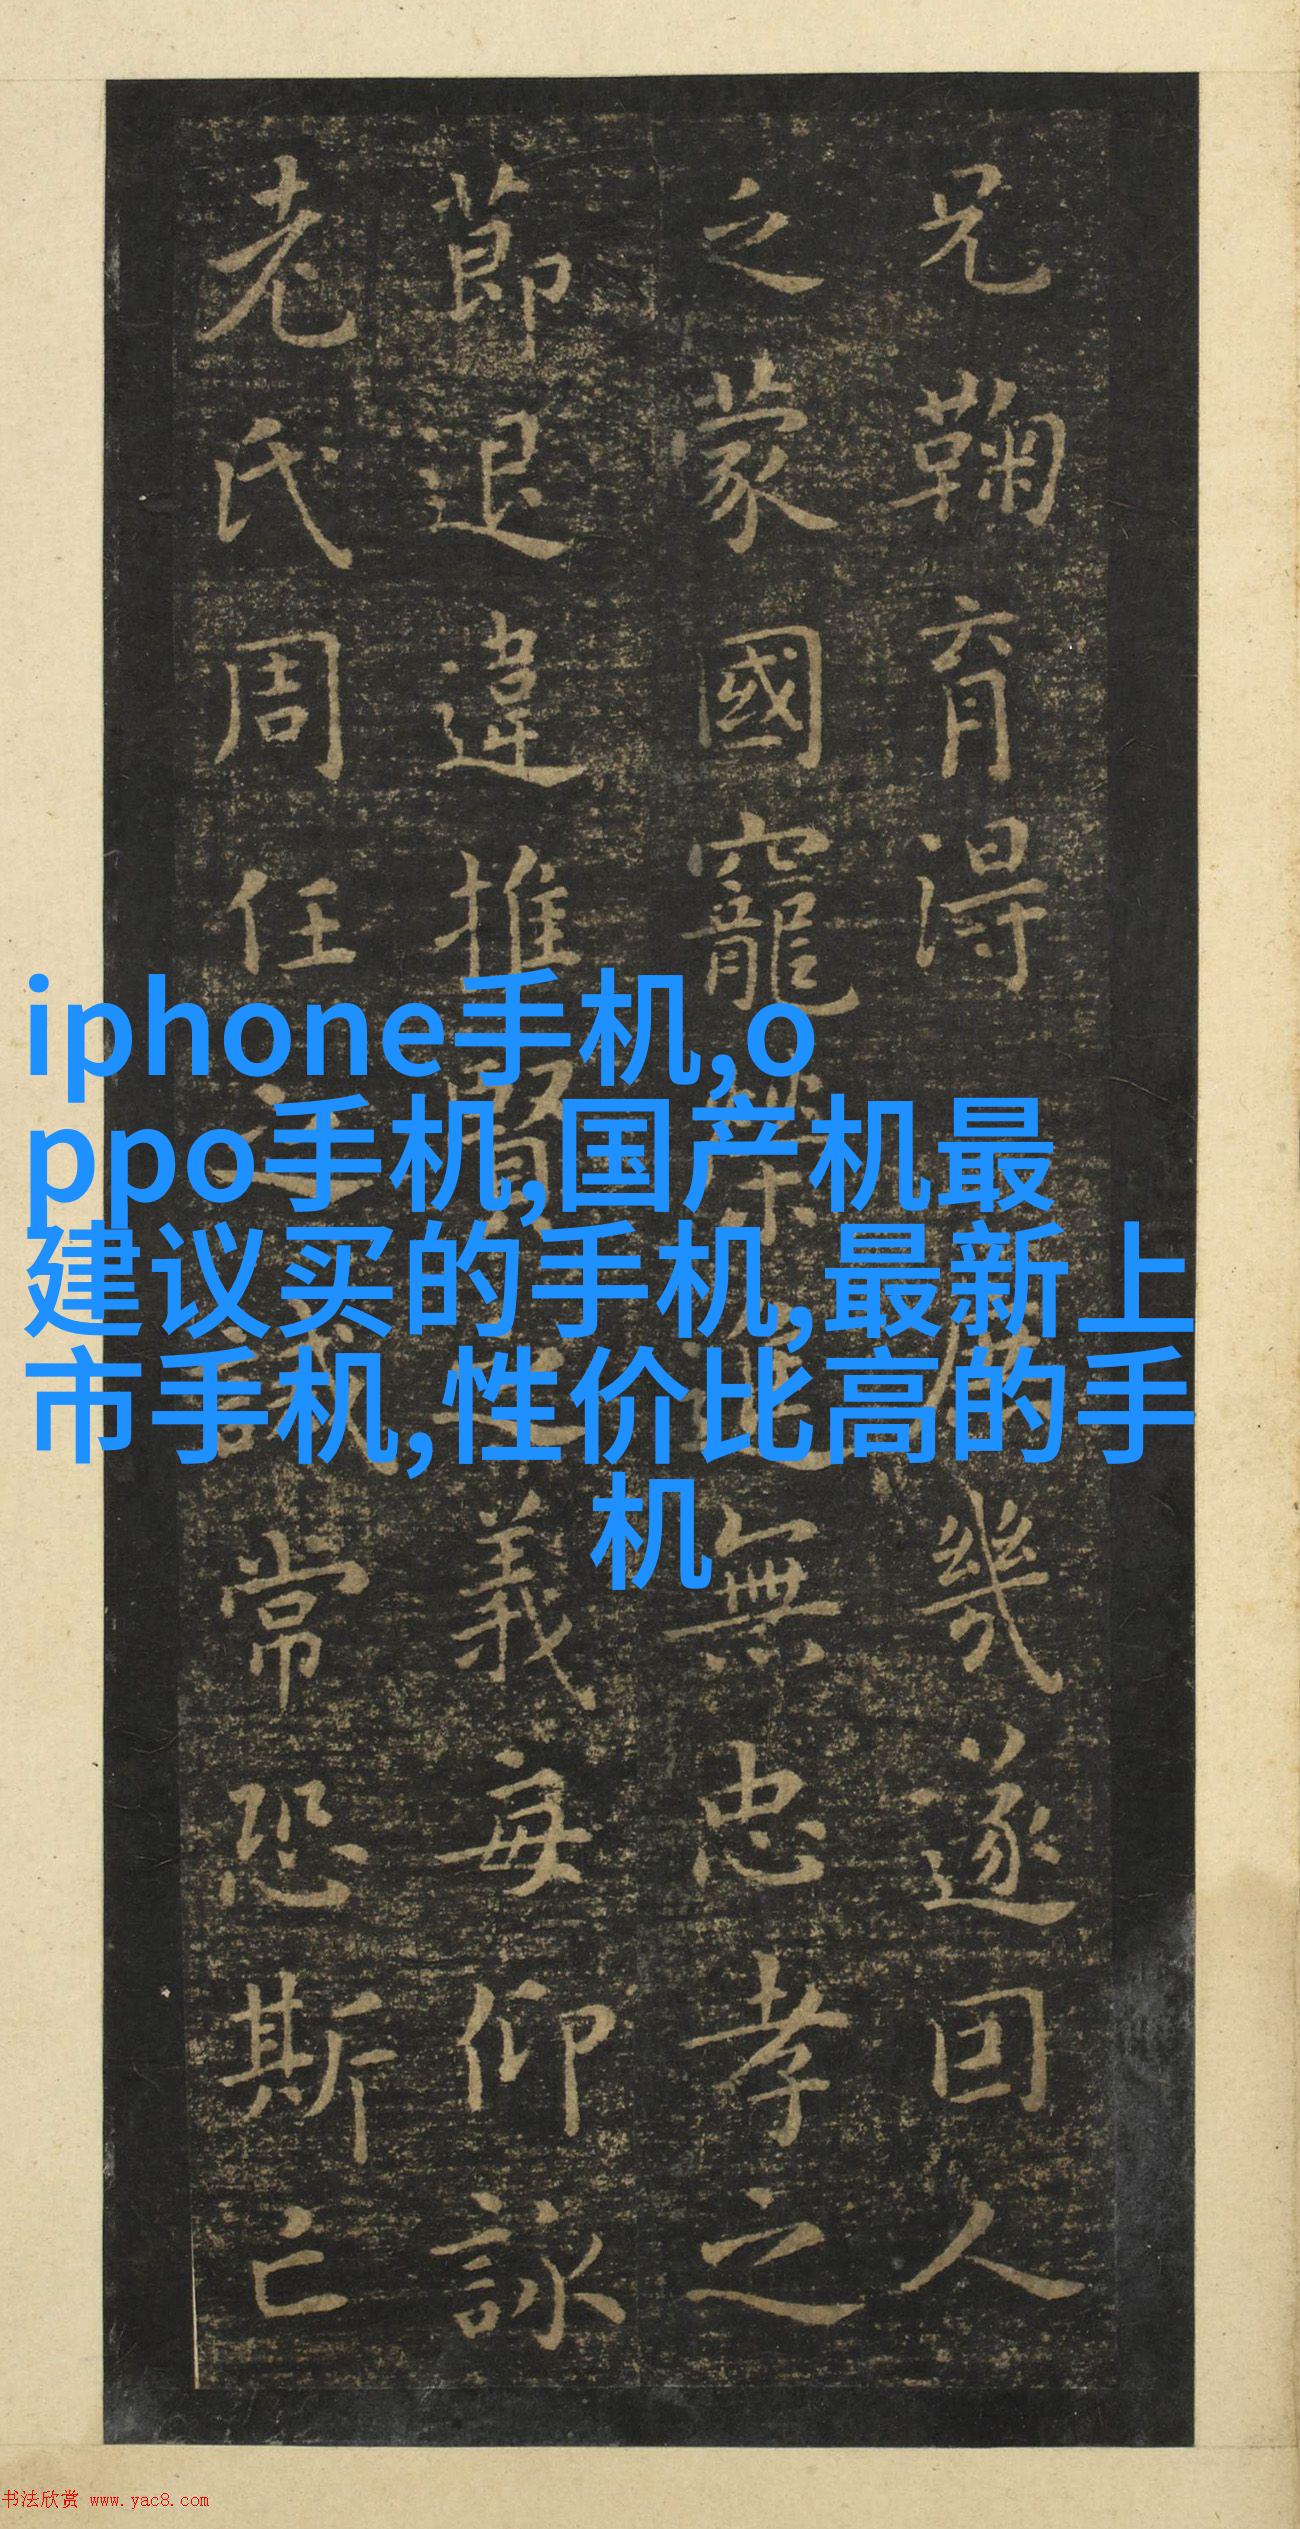 兄鞠育得庶幾遂因人
之蒙國寵榮進無忠孝之
莭退違推賢之義每仰詠
老氏周任之誡常恐斯亡
iphone手机,o
ppo手机,国产机最
建议买的手机,最新上
市手机,性价比高的手
机
书法欣赏 www.yac8.com